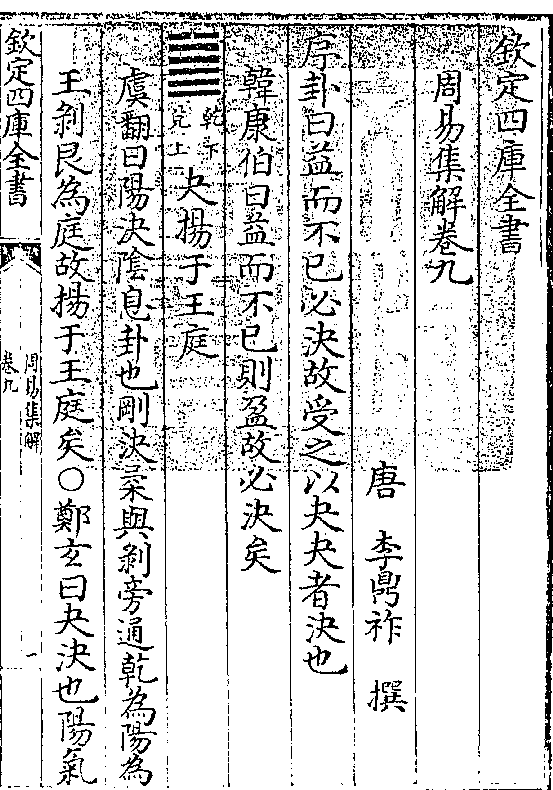 欽定四庫全書
周易集解卷九
唐　李鼎祚　撰
序卦曰益而不已必決故受之以夬夬者決也
韓康伯曰益而不已則盈故必決矣
乾下
兌上
夬揚于王庭
虞翻曰陽決隂息卦也剛決柔與剥旁通乾為陽為
王剥艮為庭故揚于王庭矣○鄭玄曰夬決也陽氣
欽定四庫全書
周易集解
卷九
一